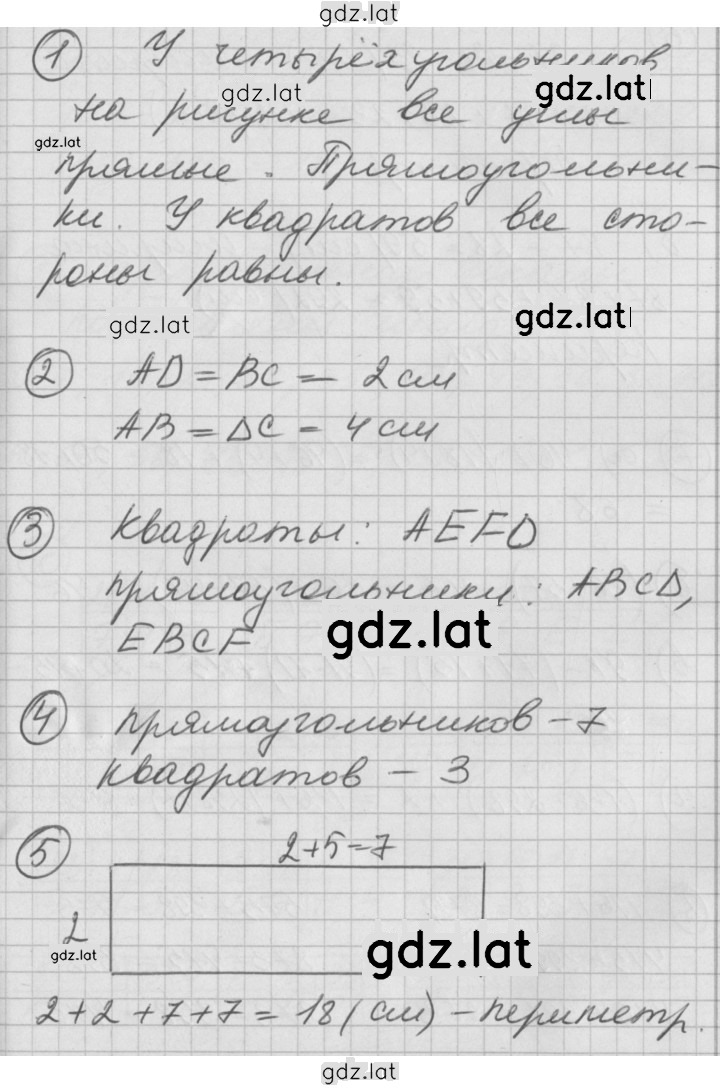 gdz.lat
① У четырёхугольников
gdz.lat gdz.lat
на рисунке все углы
gdz.lat
прямые. Прямоугольни-
ки. У квадратов все сто-
роны равны.
gdz.lat gdz.lat
② AD = BC = 2 см
AB = DC = 4 см
③ Квадраты: AEFD
прямоугольники: ABCD,
EBCF gdz.lat
④ прямоугольников – 7
квадратов – 3
⑤ 2+5=7
2
gdz.lat gdz.lat
2+2+7+7=18 (см) – периметр.
gdz.lat